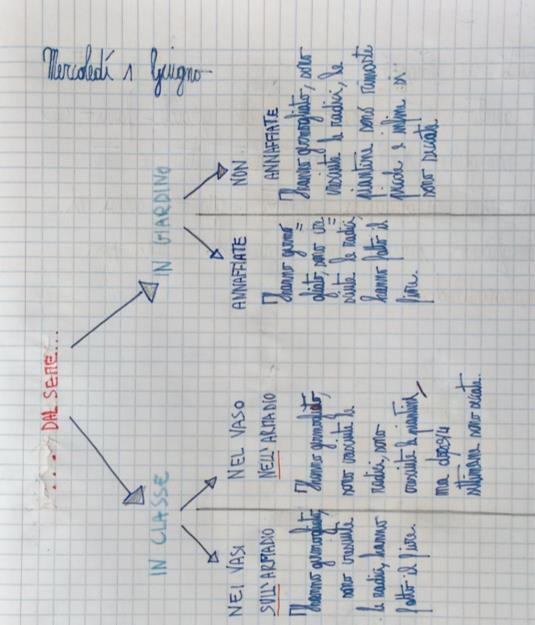 Mercoledí 1 Giugno
.... DAL SEME....
IN CLASSE
IN GIARDINO
NEI VASI
SULL'ARMADIO
Hanno germogliato,
sono cresciute
le radici, hanno
fatto il fiore.
NEL VASO
NELL'ARMADIO
Hanno germogliato,
sono cresciute le
radici, sono
cresciute le piantine,
ma dopo 3/4
settimane sono seccate.
ANNAFFIATE
Hanno germo=
gliato, sono cre=
sciute le radici,
hanno fatto il
fiore.
NON
ANNAFFIATE
Hanno germogliato, sono
cresciute le radici, le
piantine sono rimaste
picole e infine si
sono seccate.